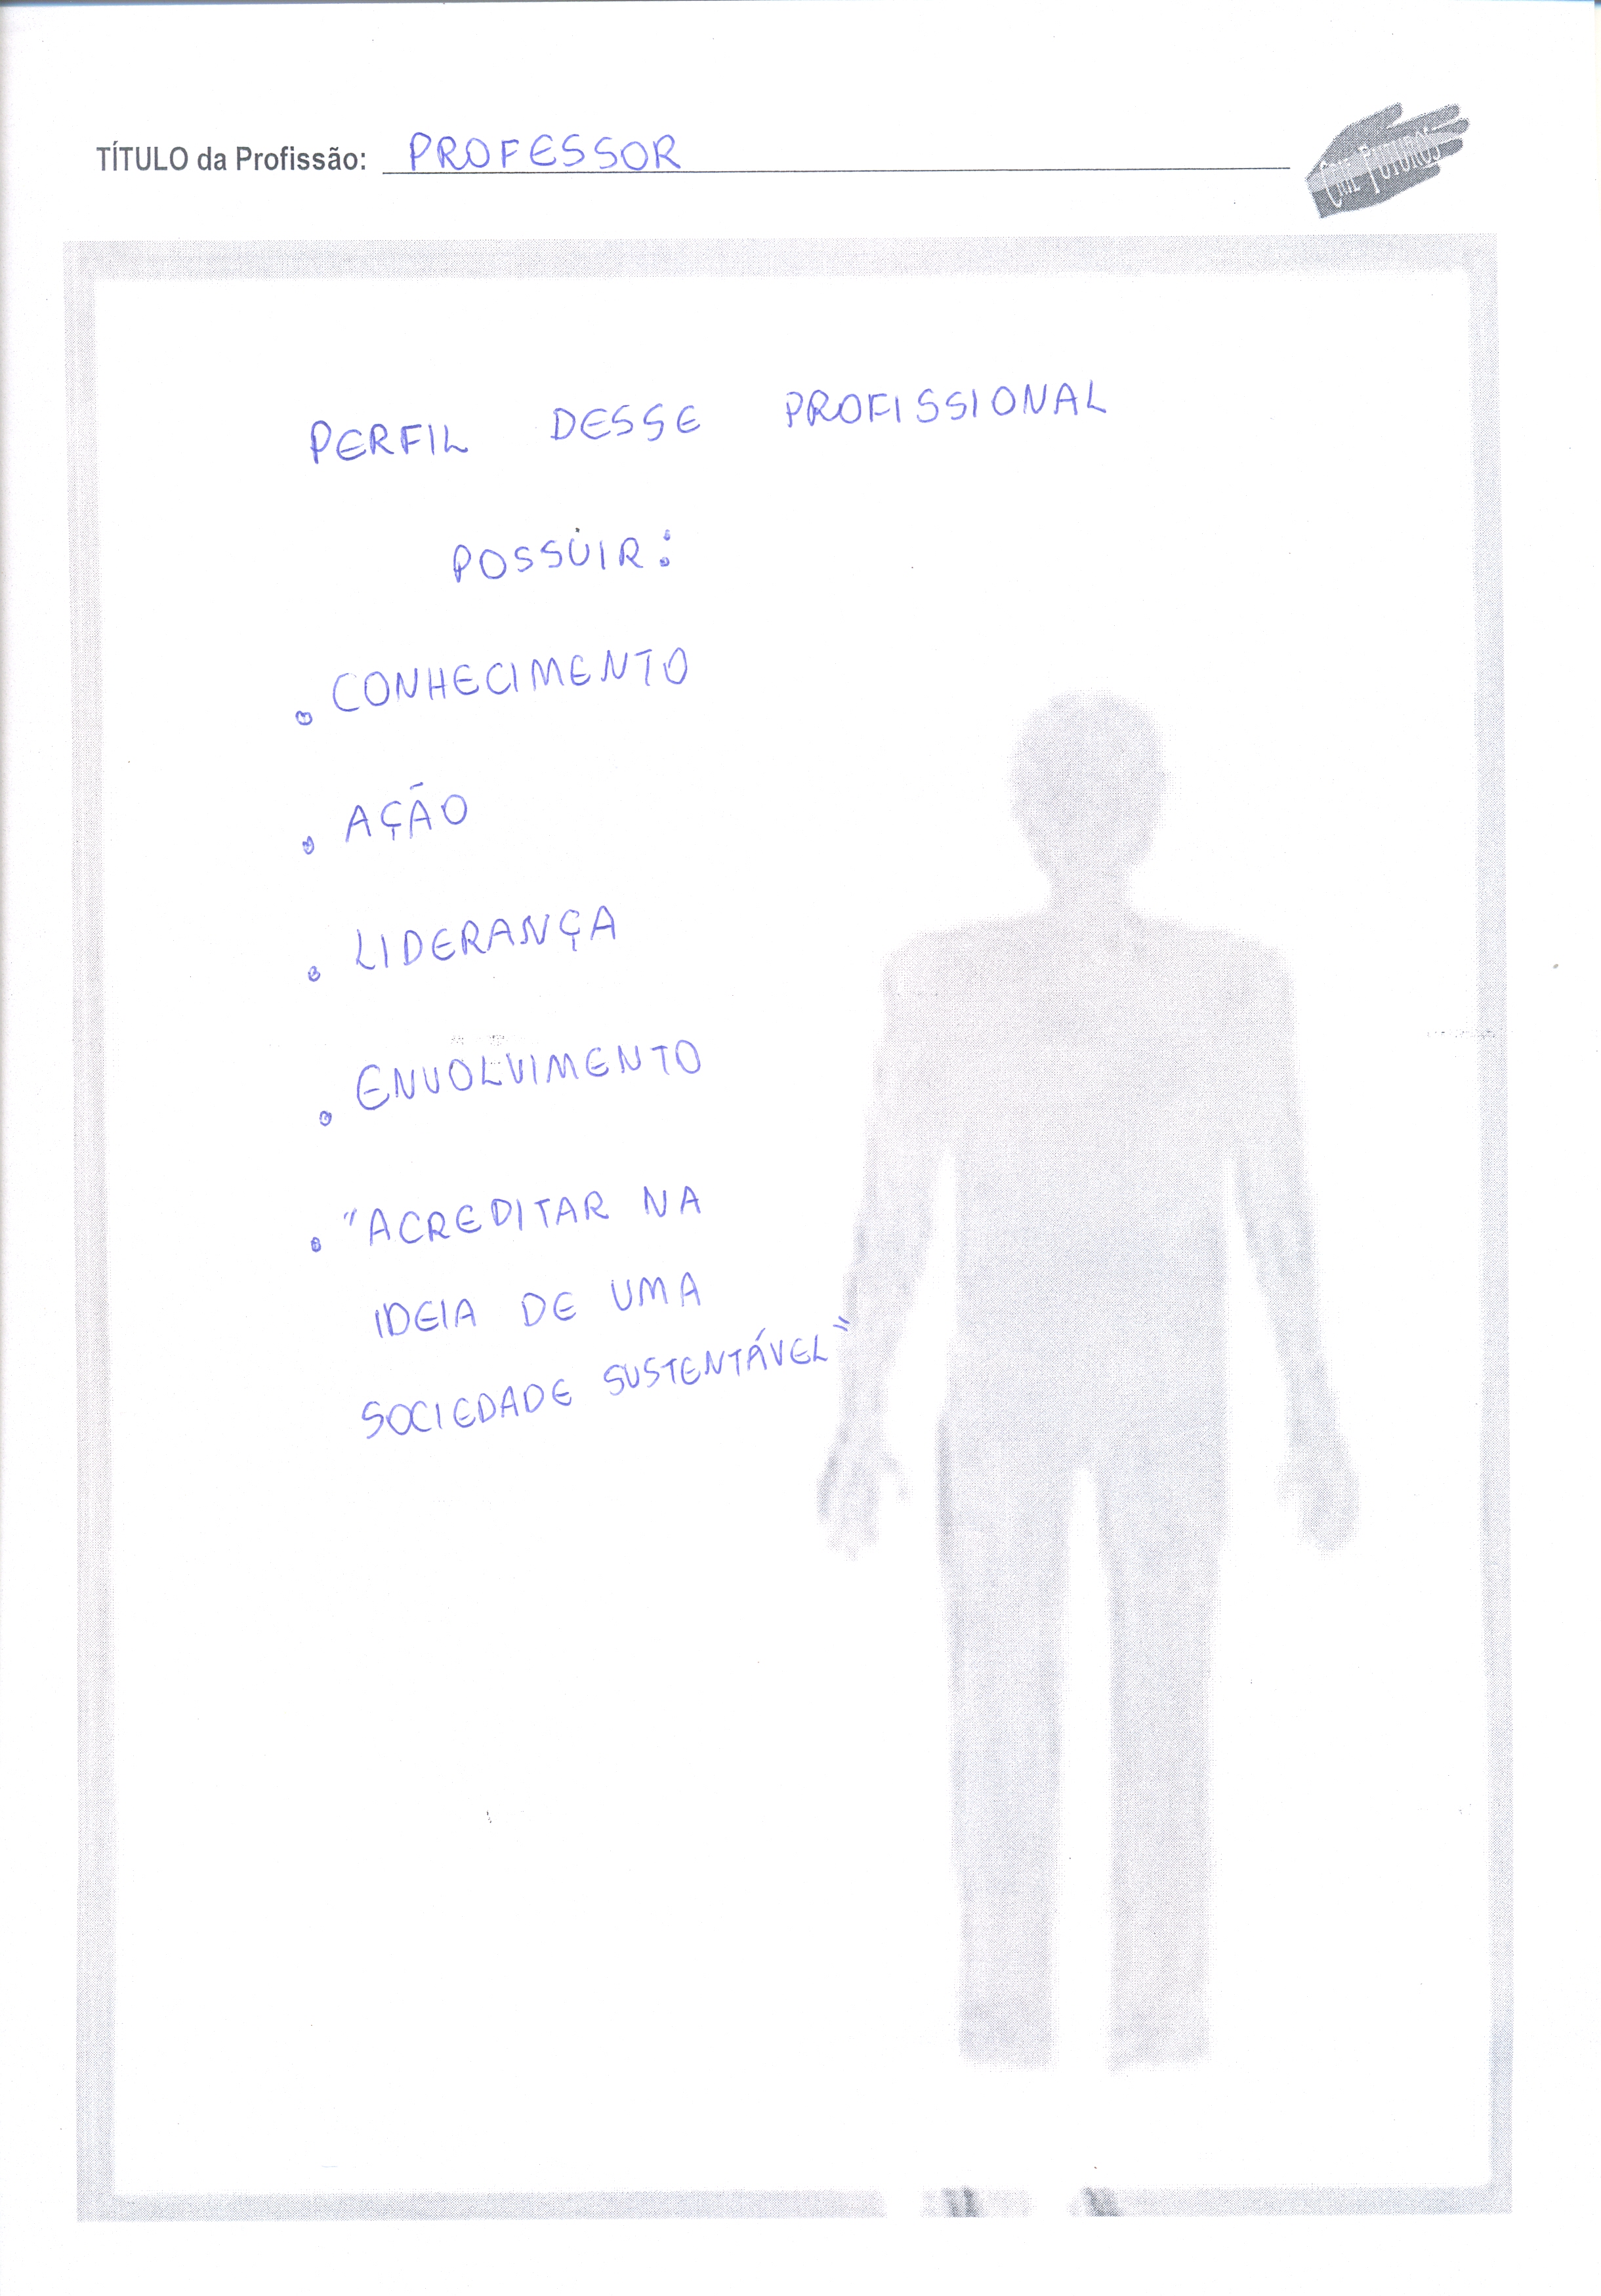 TÍTULO da Profissão: PROFESSOR
CRIE FUTUROS
PERFIL DESSE PROFISSIONAL
POSSUIR:
• CONHECIMENTO
• AÇÃO
• LIDERANÇA
• ENVOLVIMENTO
• "ACREDITAR NA
IDEIA DE UMA
SOCIEDADE SUSTENTÁVEL"